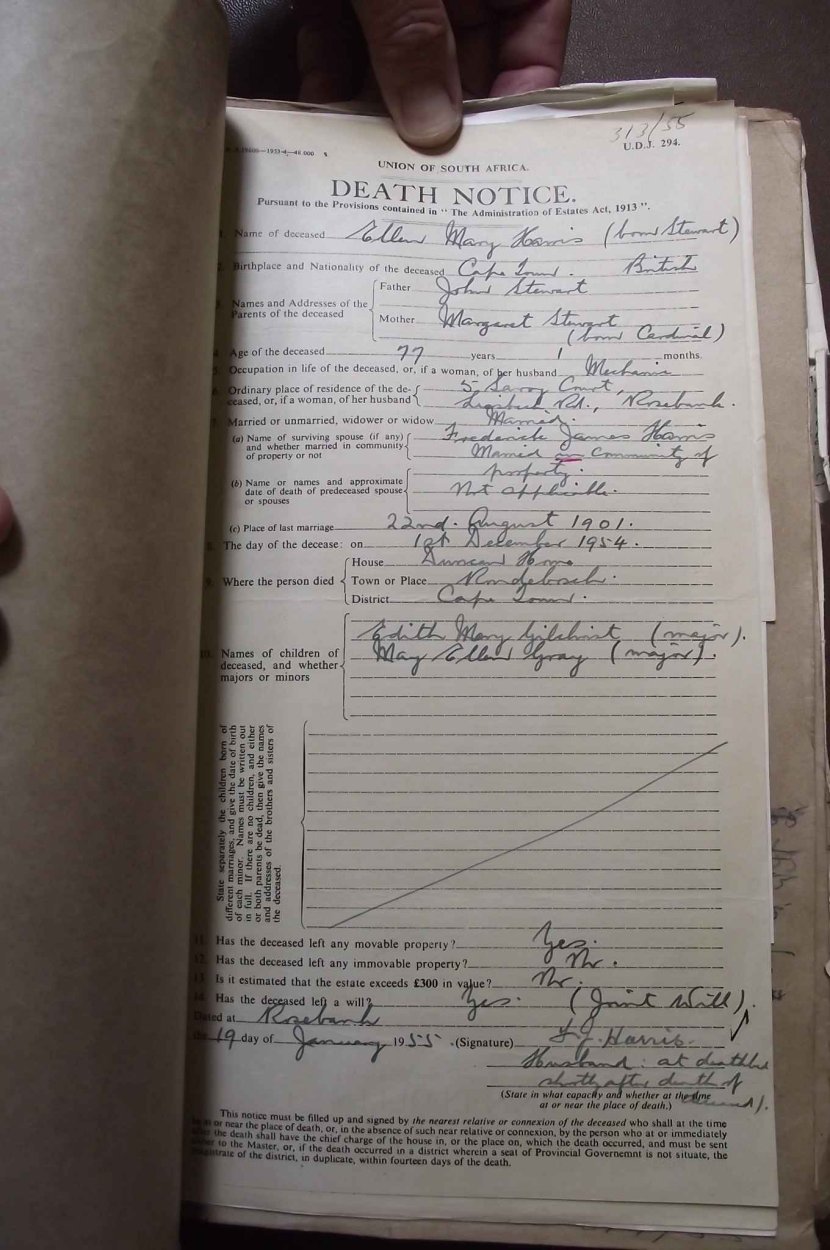 313/55
U.D.J. 294.
1953-4-48.000 S.
UNION OF SOUTH AFRICA.
DEATH NOTICE.
Pursuant to the Provisions contained in "The Administration of Estates Act, 1913".
1. Name of deceased Ellen Mary Harris (born Stewart)
2. Birthplace and Nationality of the deceased Cape Town. British
3. Names and Addresses of the Parents of the deceased
Father John Stewart
Mother Margaret Stewart
(born Cardinal)
4. Age of the deceased 77 years 1 months.
5. Occupation in life of the deceased, or, if a woman, of her husband Mechanic
6. Ordinary place of residence of the de- 5 Savoy Court,
ceased, or, if a woman, of her husband Rd., Rosebank.
7. Married or unmarried, widower or widow Married.
(a) Name of surviving spouse (if any) Frederick James Harris
and whether married in community Married in Community of
of property or not property.
(b) Name or names and approximate
date of death of predeceased spouse Not applicable.
or spouses
(c) Place of last marriage 22nd. August 1901.
8. The day of the decease: on 1st December 1954.
9. Where the person died
House Duncan Home
Town or Place Rondebosch.
District Cape Town.
Edith Mary Gilchrist (major).
10. Names of children of May Ellen Gray (major).
deceased, and whether
majors or minors
State separately the children born of
different marriages, and give the date of birth
of each minor. Names must be written out
in full. If there are no children, and either
or both parents be dead, then give the names
and addresses of the brothers and sisters of
the deceased.
11. Has the deceased left any movable property? Yes.
12. Has the deceased left any immovable property? No.
13. Is it estimated that the estate exceeds £300 in value? No.
14. Has the deceased left a will? Yes. (Joint Will).
Dated at Rosebank
the 19 day of January 1955. (Signature) F.J. Harris.
Husband: at deathbed
shortly after death of
deceased).
(State in what capacity and whether at the time
at or near the place of death.)
This notice must be filled up and signed by the nearest relative or connexion of the deceased who shall at the time
be at or near the place of death, or, in the absence of such near relative or connexion, by the person who at or immediately
after the death shall have the chief charge of the house in, or the place on, which the death occurred, and must be sent
either to the Master, or, if the death occurred in a district wherein a seat of Provincial Governemnt is not situate, the
magistrate of the district, in duplicate, within fourteen days of the death.